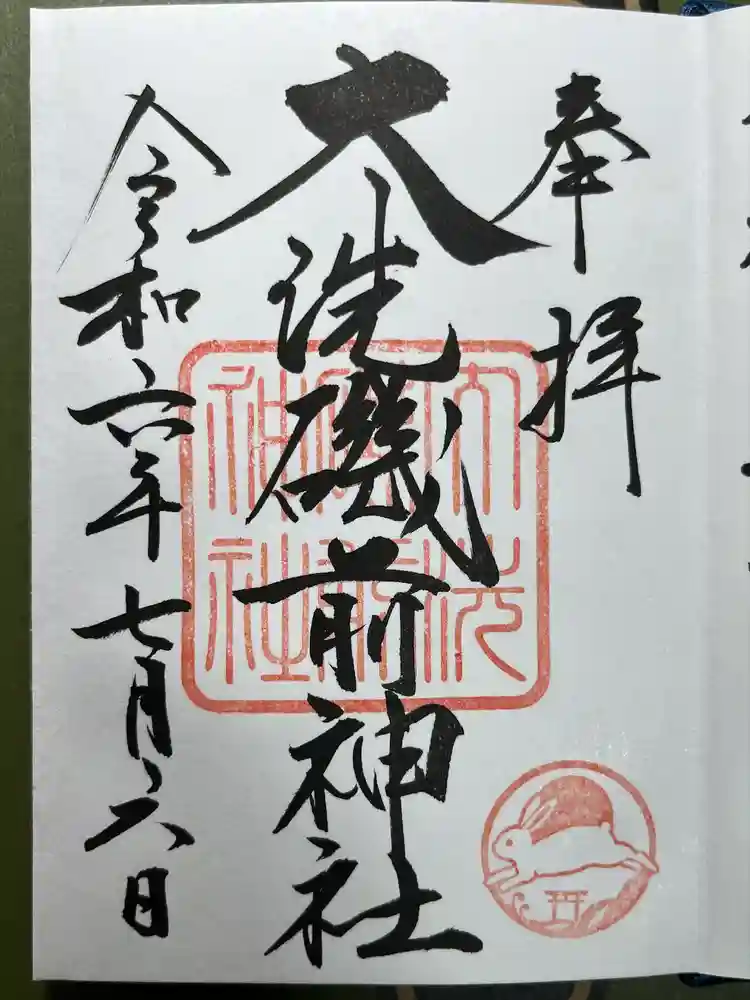 奉拝
大洗磯前神社
大洗磯前神社
令和六年七月六日